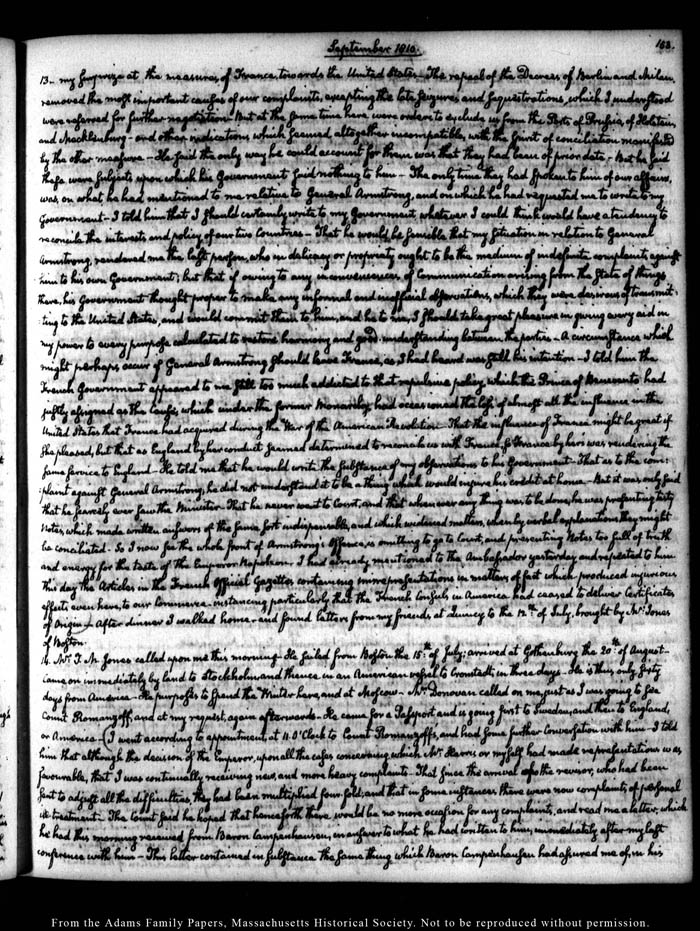 September 1810.
163.
13. my surprize at the measures of France towards the United States — The repeal of the Decrees of Berlin and Milan,
removed the most important causes of our complaints, excepting the late seizures and sequestrations, which I understood
were referred for further negotiation. But at the same time here were orders to exclude us from the Ports of Prussia, of Holstein,
and Mecklenburg — and other indications which seemed altogether incompatible with the spirit of conciliation manifested
by the other measure — He said the only way he could account for them was that they had been of prior date — But he said
these were subjects upon which his Government said nothing to him — The only time they had spoken to him of our affairs,
was, on what he had mentioned to me relative to General Armstrong, and on which he had requested me to write to my
Government — I told him that I should certainly write to my Government whatever I could think would have a tendency to
reconcile the interests and policy of our two Countries — That he would be sensible that my situation in relation to General
Armstrong, rendered me the last person, who in delicacy or propriety ought to be the medium of indefinite complaints against
him to his own Government; but that if owing to any inconveniences of Communication arising from the State of things
there, his Government thought proper to make any informal and unofficial observations, which they were desirous of transmit-
ting to the United States, and would commit them to him, and he to me, I should take great pleasure in giving every aid in
my power to every purpose calculated to restore harmony and good understanding between the parties — A circumstance which
might perhaps occur if General Armstrong should leave France, as I had heard was still his intention — I told him the
French Government appeared to me still too much addicted to that repulsive policy, which the Prince of Benevento had
justly assigned as the cause, which under the former Monarchy, had occasioned the loss of almost all the influence in the
United States that France had acquired during the War of the American Revolution. That the influence of France might be great if
she pleased, but that as England by her conduct seemed determined to reconcile us with France, so France by hers was rendering the
same service to England. He told me that he would write the substance of my observations to his Government — That as to the com-
plaint against General Armstrong, he did not understand it to be a thing which would injure his credit at home — But it was only said
that he scarcely ever saw the Minister. That he never went to Court, and that whenever any thing was to be done, he was presenting testy
Notes, which made written answers of the same sort indispensable, and which widened matters, when by verbal explanations they might
be conciliated. So I now see the whole front of Armstrong's offence, is omitting to go to Court, and presenting Notes too full of truth
and energy for the taste of the Emperor Napoleon. I had already mentioned to the Ambassador yesterday and repeated to him
this day the Articles in the French Official Gazettes containing misrepresentations in matters of fact which produced injurious
effects even here, to our Commerce — instancing particularly that the French Consuls in America had ceased to deliver Certificates
of Origin — After dinner I walked home — and found letters from my friends at Quincy to the 12th of July, brought by Mr: Jones
of Boston.
14. Mr: T. M. Jones called upon me this morning — He sailed from Boston the 15th of July; arrived at Gothenburg the 20th of August —
came on immediately by land to Stockholm and thence in an American vessel to Cronstadt, in three days — He is thus only sixty
days from America — He purposes to spend the Winter here, and at Moscow — Mr Donovan called on me, just as I was going to see
Count Romanzoff, and at my request, again afterwards — He came for a Passport and is going first to Sweden, and then to England,
or America — I went according to appointment, at 11. O'Clock to Count Romanzoff's, and had some further Conversation with him — I told
him that although the decision of the Emperor, upon all the cases concerning which Mr Harris or myself had made representations was
favourable, that I was continually receiving new, and more heavy complaints — That since the arrival of the revisor, who had been
sent to adjust all the difficulties, they had been multiplied four fold, and that in some instances there were now complaints of personal
ill treatment. The Count said he hoped that henceforth there would be no more occasion for any complaints, and read me a letter which
he had this morning received from Baron Campenhausen, in answer to what he had written to him, immediately after my last
conference with him — This letter contained in substance the same thing which Baron Campenhausen had assured me of, in his
From the Adams Family Papers, Massachusetts Historical Society. Not to be reproduced without permission.